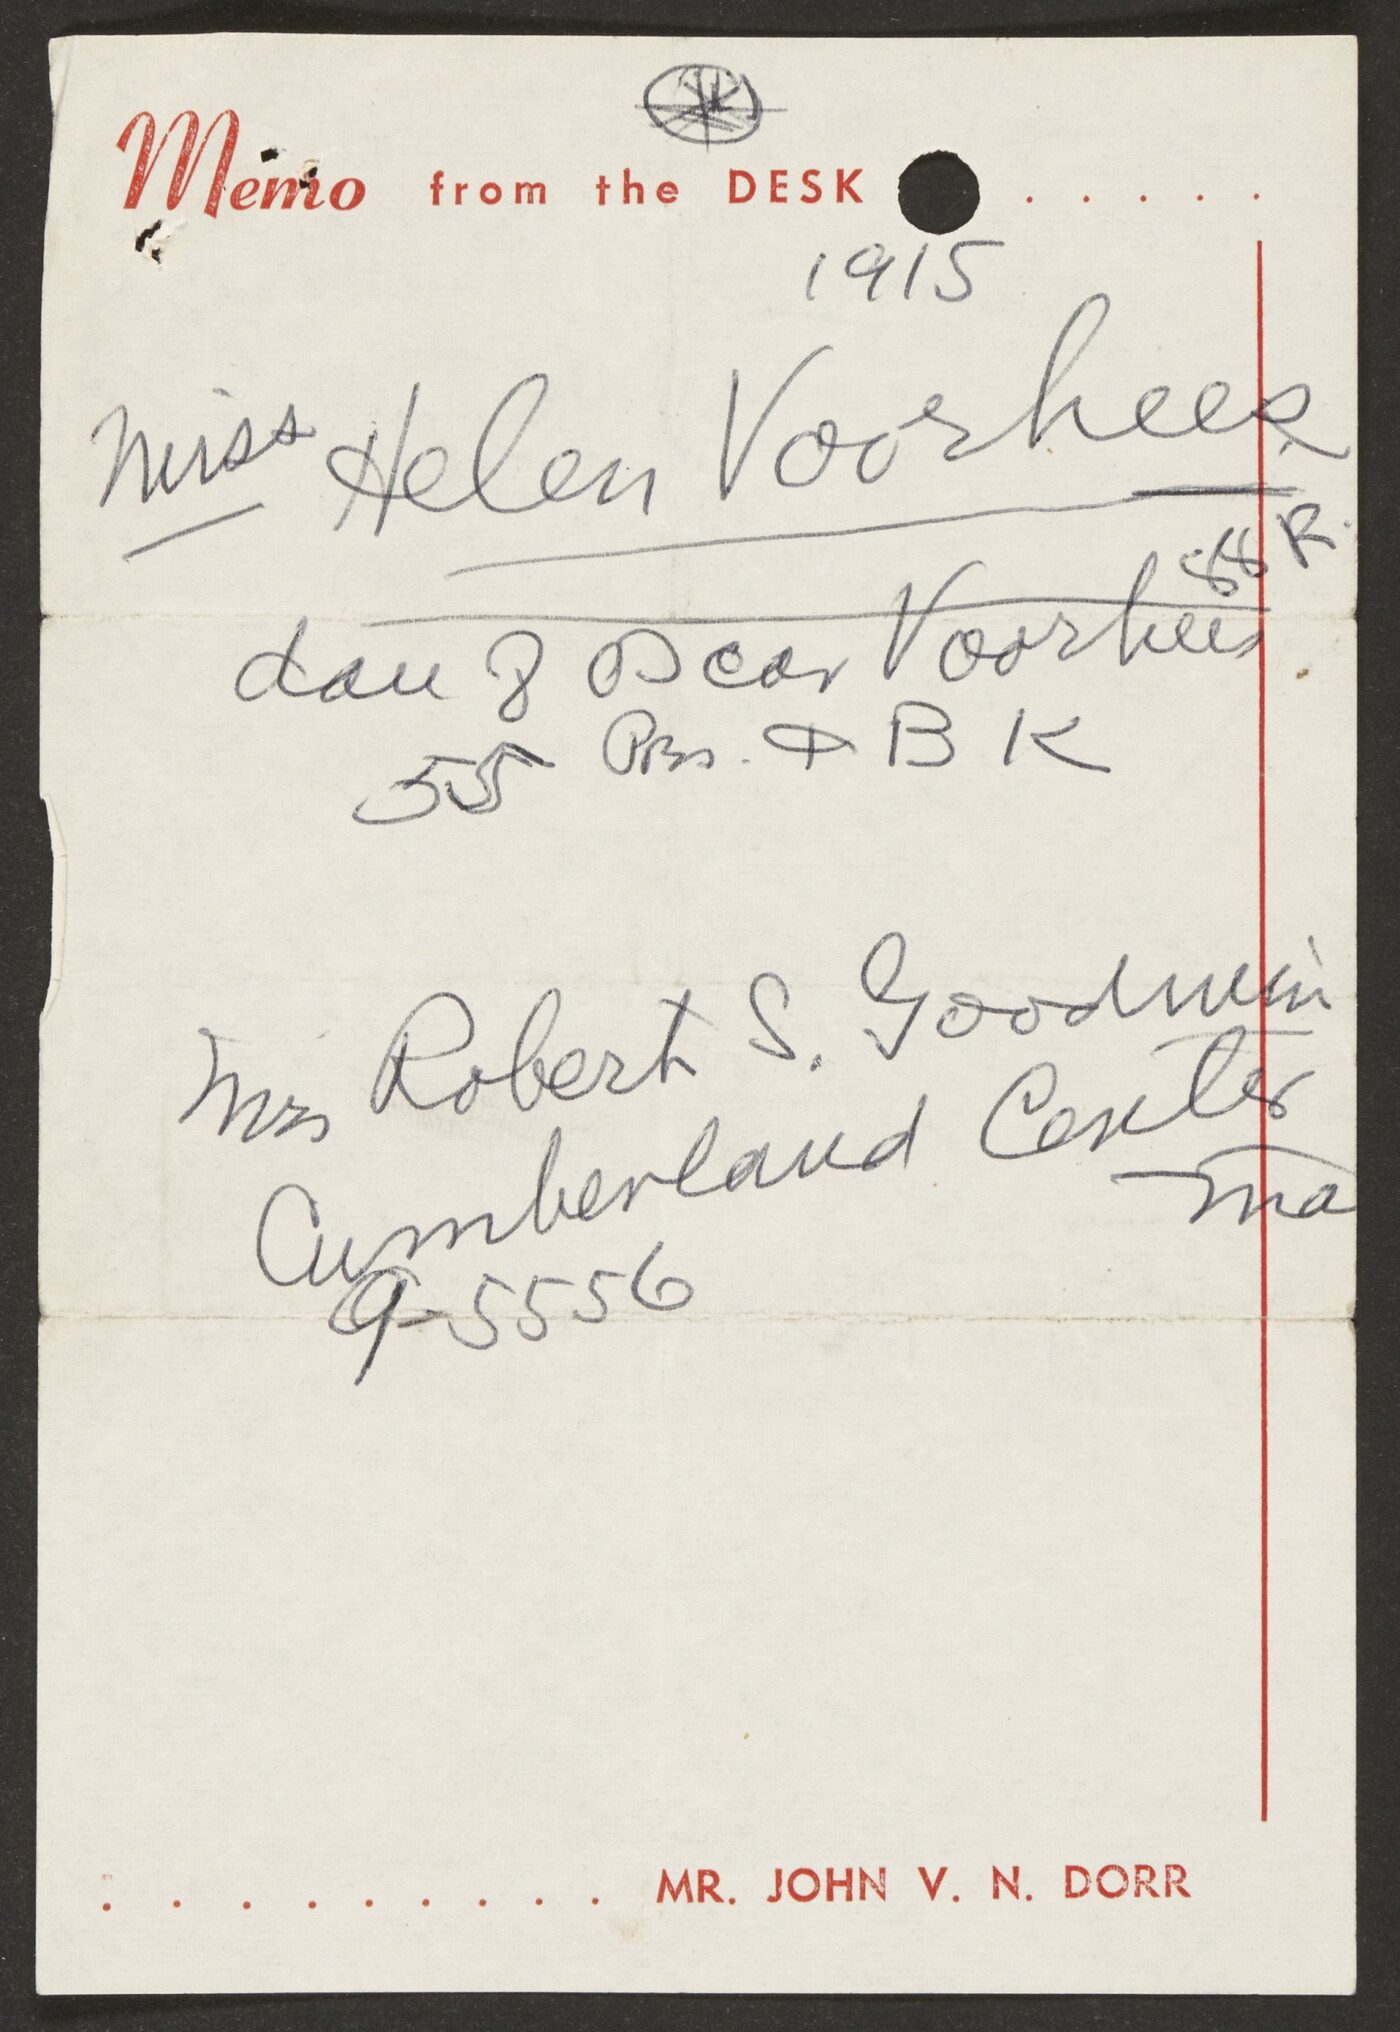 Memo from the DESK . . . . .
1915
Miss Helen Voorhees
88 R.
dau of Oscar Voorhees
55 Pres. Φ B K
Mrs Robert S. Goodwin
Cumberland Center
Ma
9-5556
. . . . . . . . MR. JOHN V. N. DORR